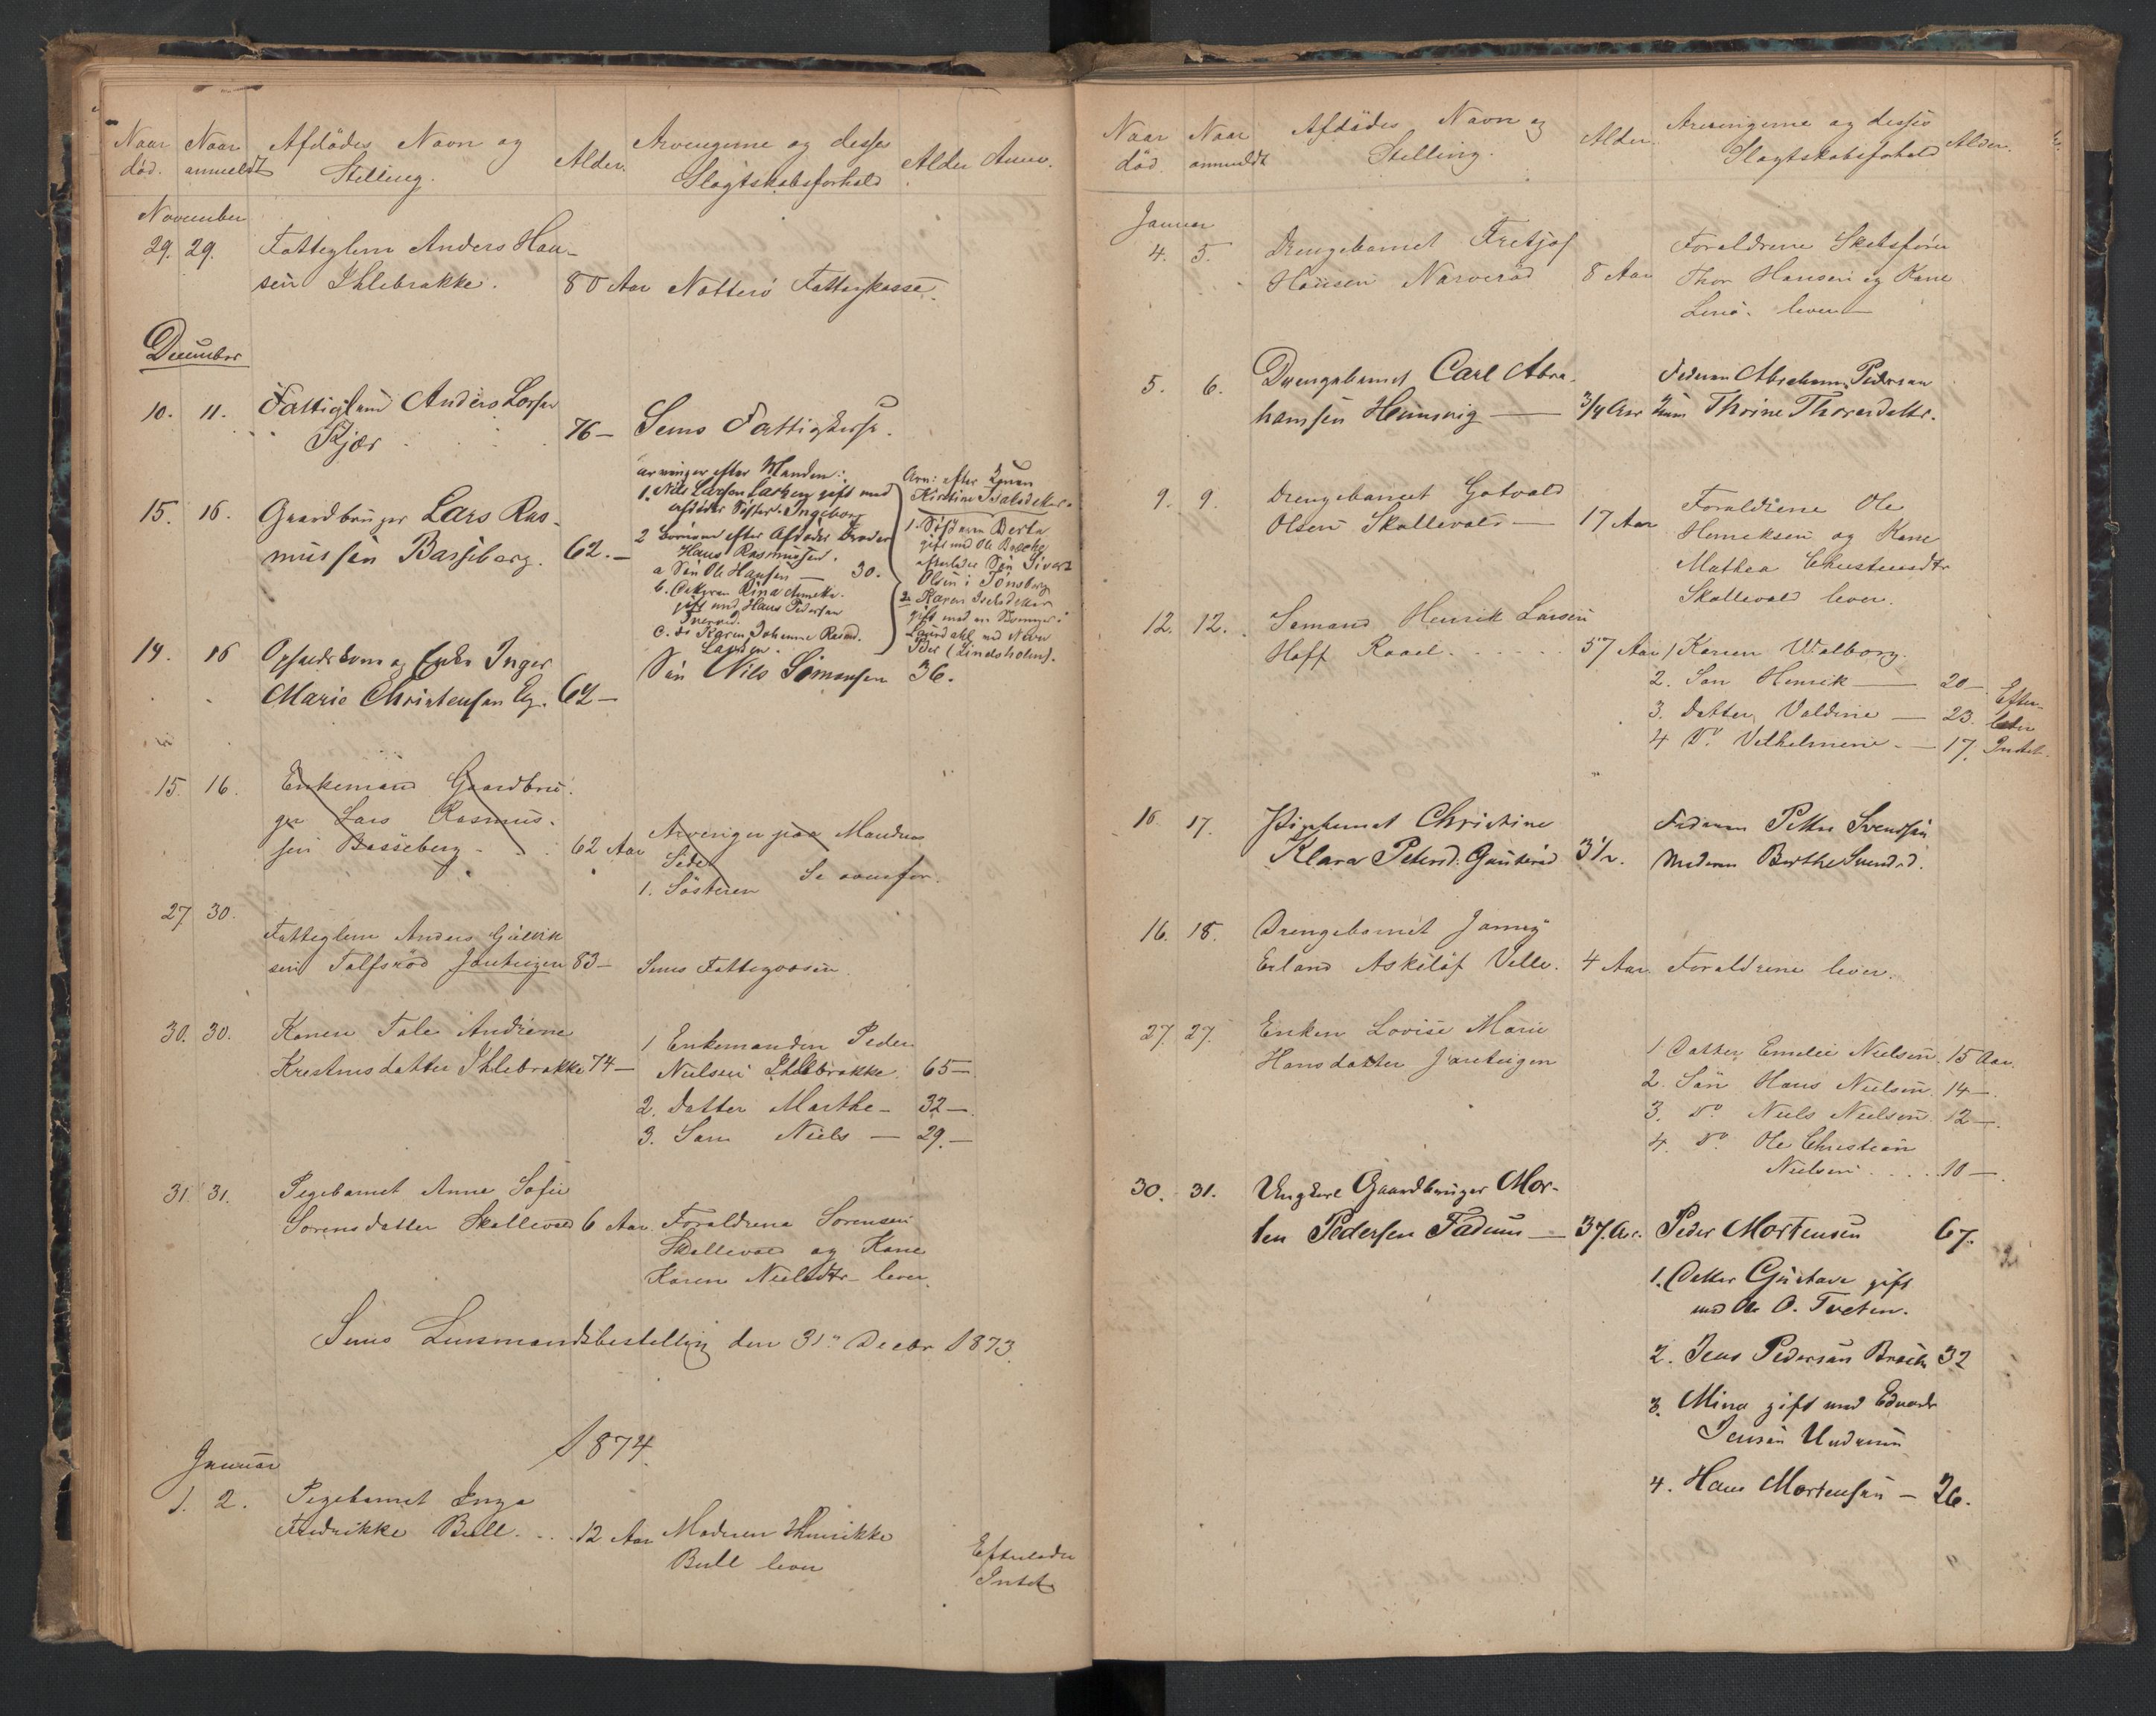 Naar død. Naar anmeldt Afdødes Navn og Stilling. Alder. Arvingerne og disses Slægtskabsforhold Alder Anm.
November
29. 29. Fattiglem Anders Han-
sen Ihlebrække. 80 Aar Nötterö Fattigkasse.
December
10. 11. Fattiglem Anders Larsen
Kjær 76 — Sems Fattigkasse.
15. 16. Gaardbruger Lars Ras-
mussen Basseberg. 62. —
arvinger efter Manden:
1. Nils Larsen gift med
afdødes Söster Ingeborg
2 Börnene efter Afdødes Broder
Hans Rasmussen.
a Sön Ole Hansen — 30.
b. Datteren Rina
gift med Hans Pedersen
c. do Karen Johanne
Arv: efter Konen
Kirstine Isaksdatter.
1. Søsteren Berte
gift med Ole
efterlader Sön Sivert
Olsen i Tönsberg
2. Karen Isaksdatter
gift med en
Laurdahl ved Navn
Peder (Lindsholm).
14. 16 Opholdskone og Enke Inger
Marie Christensen Eg. 62 —
Sön Nils Simensen 36.
15. 16. Enkemand Gaardbru-
ger Lars Rasmus-
sen Basseberg 62 Aar
Arvinger paa Mandens
Side
1. Søsteren Se ovenfor.
27 30.
Fattiglem Anders
sen Tolfsröd Jarteigen 83 — Sems Fattigvæsen.
30. 30. Konen Tale Andrine
Krestensdatter Ihlebrække 74 —
1 Enkemanden Peder
Nielsen Ihlebrække. 65 —.
2. Datter Marthe — 32 —.
3. Søn Niels — 29. —
31. 31. Pigebarnet Anne Sofie
Sorensdatter Skallevold 6 Aar. Forældrene Sorensen
Skallevold og Kone
Karen Nielsdtr lever.
Sems Lensmandsbestilling den 31te Decbr 1873.
1874.
Januar
1. 2. Pigebarnet Inga
Fredrikke Bull. . . 12 Aar Moderen Henrikke
Bull lever
Efterlader
Intet
Naar død. Naar anmeldt Afdødes Navn og Stilling. Alder. Arvingerne og disses Slægtskabsforhold Alder.
Januar
4. 5. Drengebarnet Fretjof
Hansen Narveröd 8 Aar
Forældrene
Thor Hansen og Kone
Lina. lever —
5. 6. Drengebarnet Carl Abra-
hamsen Hemsvig — 3/4 Aar
Faderen Abraham Pedersen
Thrine Thorsdatter.
9. 9. Drengebarnet Gotvald
Olsen Skallevold — 17 Aar
Forældrene Ole
Henriksen og Kone
Mathea Christensdtr
Skallevold lever.
12. 12. Sømand Henrik Larsen
Hoff Raael. 57 Aar 1 Konen Walborg.
2. Søn Henrik — 20 —
3. Datter Valdine — 23.
4 Do. Vilhelmine. — 17.
Efter-
lader
Intet.
16. 17. Pigebarnet Christine
Klara Petersd. Gauteröd 3 1/2.
Faderen Petter Svendsen
Moderen Berthe Svendsd.
16. 18. Drengebarnet Janny
Erland Askilöf Velle. 4 Aar. Forældrene lever.
27. 27. Enken Lovise Marie
Hansdatter Jarteigen
1 Datter Emelie Nielsen. 15 Aar.
2. Søn Hans Nielsen. 14 —.
3. Do Niels Nielsen. 12 —.
4. Do Ole Christian
Nielsen. 10 —
30. 31. Ungkarl Gaardbruger Mor-
ten Pedersen Fadum — 37. Aar. Peder Mortensen 67.
1. Datter Gustava gift
med Ole O. Tveten.
2. Jens Pedersen 32
3. Mina gift med Edvard
Jensen Undrum
4. Hans Mortensen — 26.